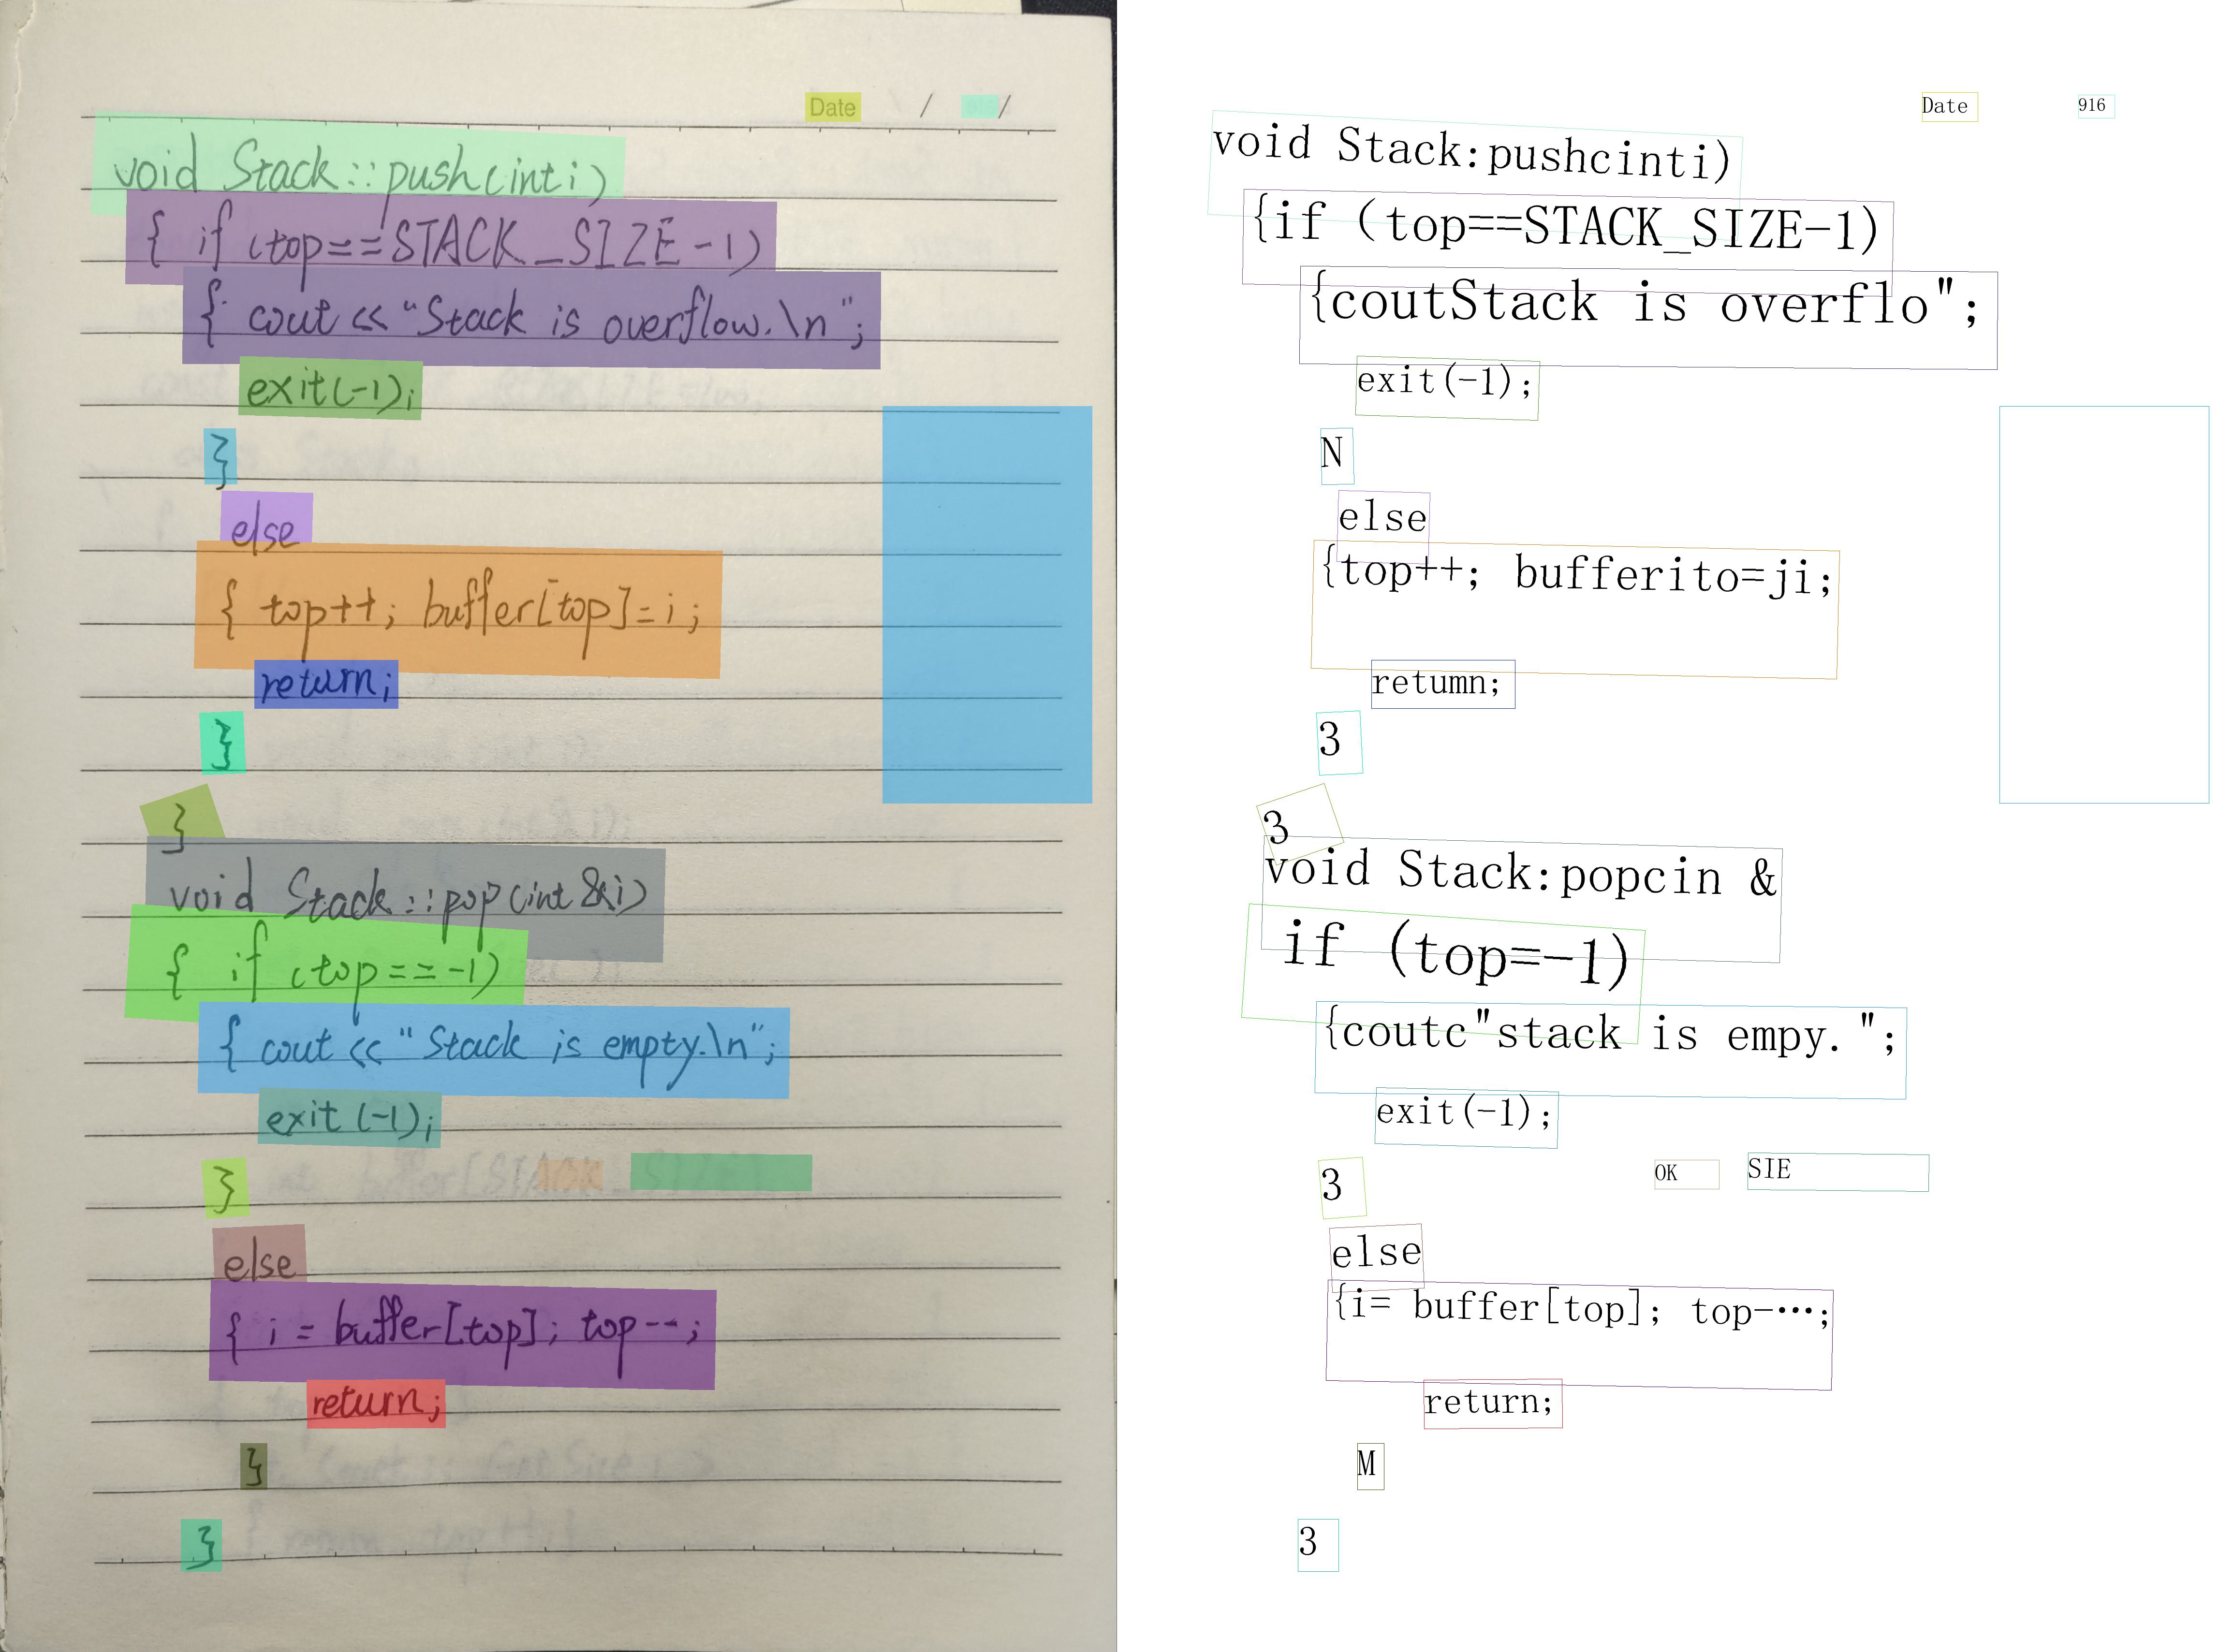 Date / /
void Stack::push(int i)
{ if (top==STACK_SIZE-1)
{ cout << "Stack is overflow.\n";
exit(-1);
}
else
{ top++; buffer[top]=i;
return;
}
}
void Stack::pop(int &i)
{ if (top==-1)
{ cout << "Stack is empty.\n";
exit(-1);
}
else
{ i = buffer[top]; top--;
return;
}
}
Date 916
void Stack:pushcinti)
{if (top==STACK_SIZE-1)
{coutStack is overflo";
exit(-1);
N
else
{top++; bufferito=ji;
retumn;
3
3
void Stack:popcin &
if (top=-1)
{coutc"stack is empy.";
exit(-1);
3 OK SIE
else
{i= buffer[top]; top-…;
return;
M
3